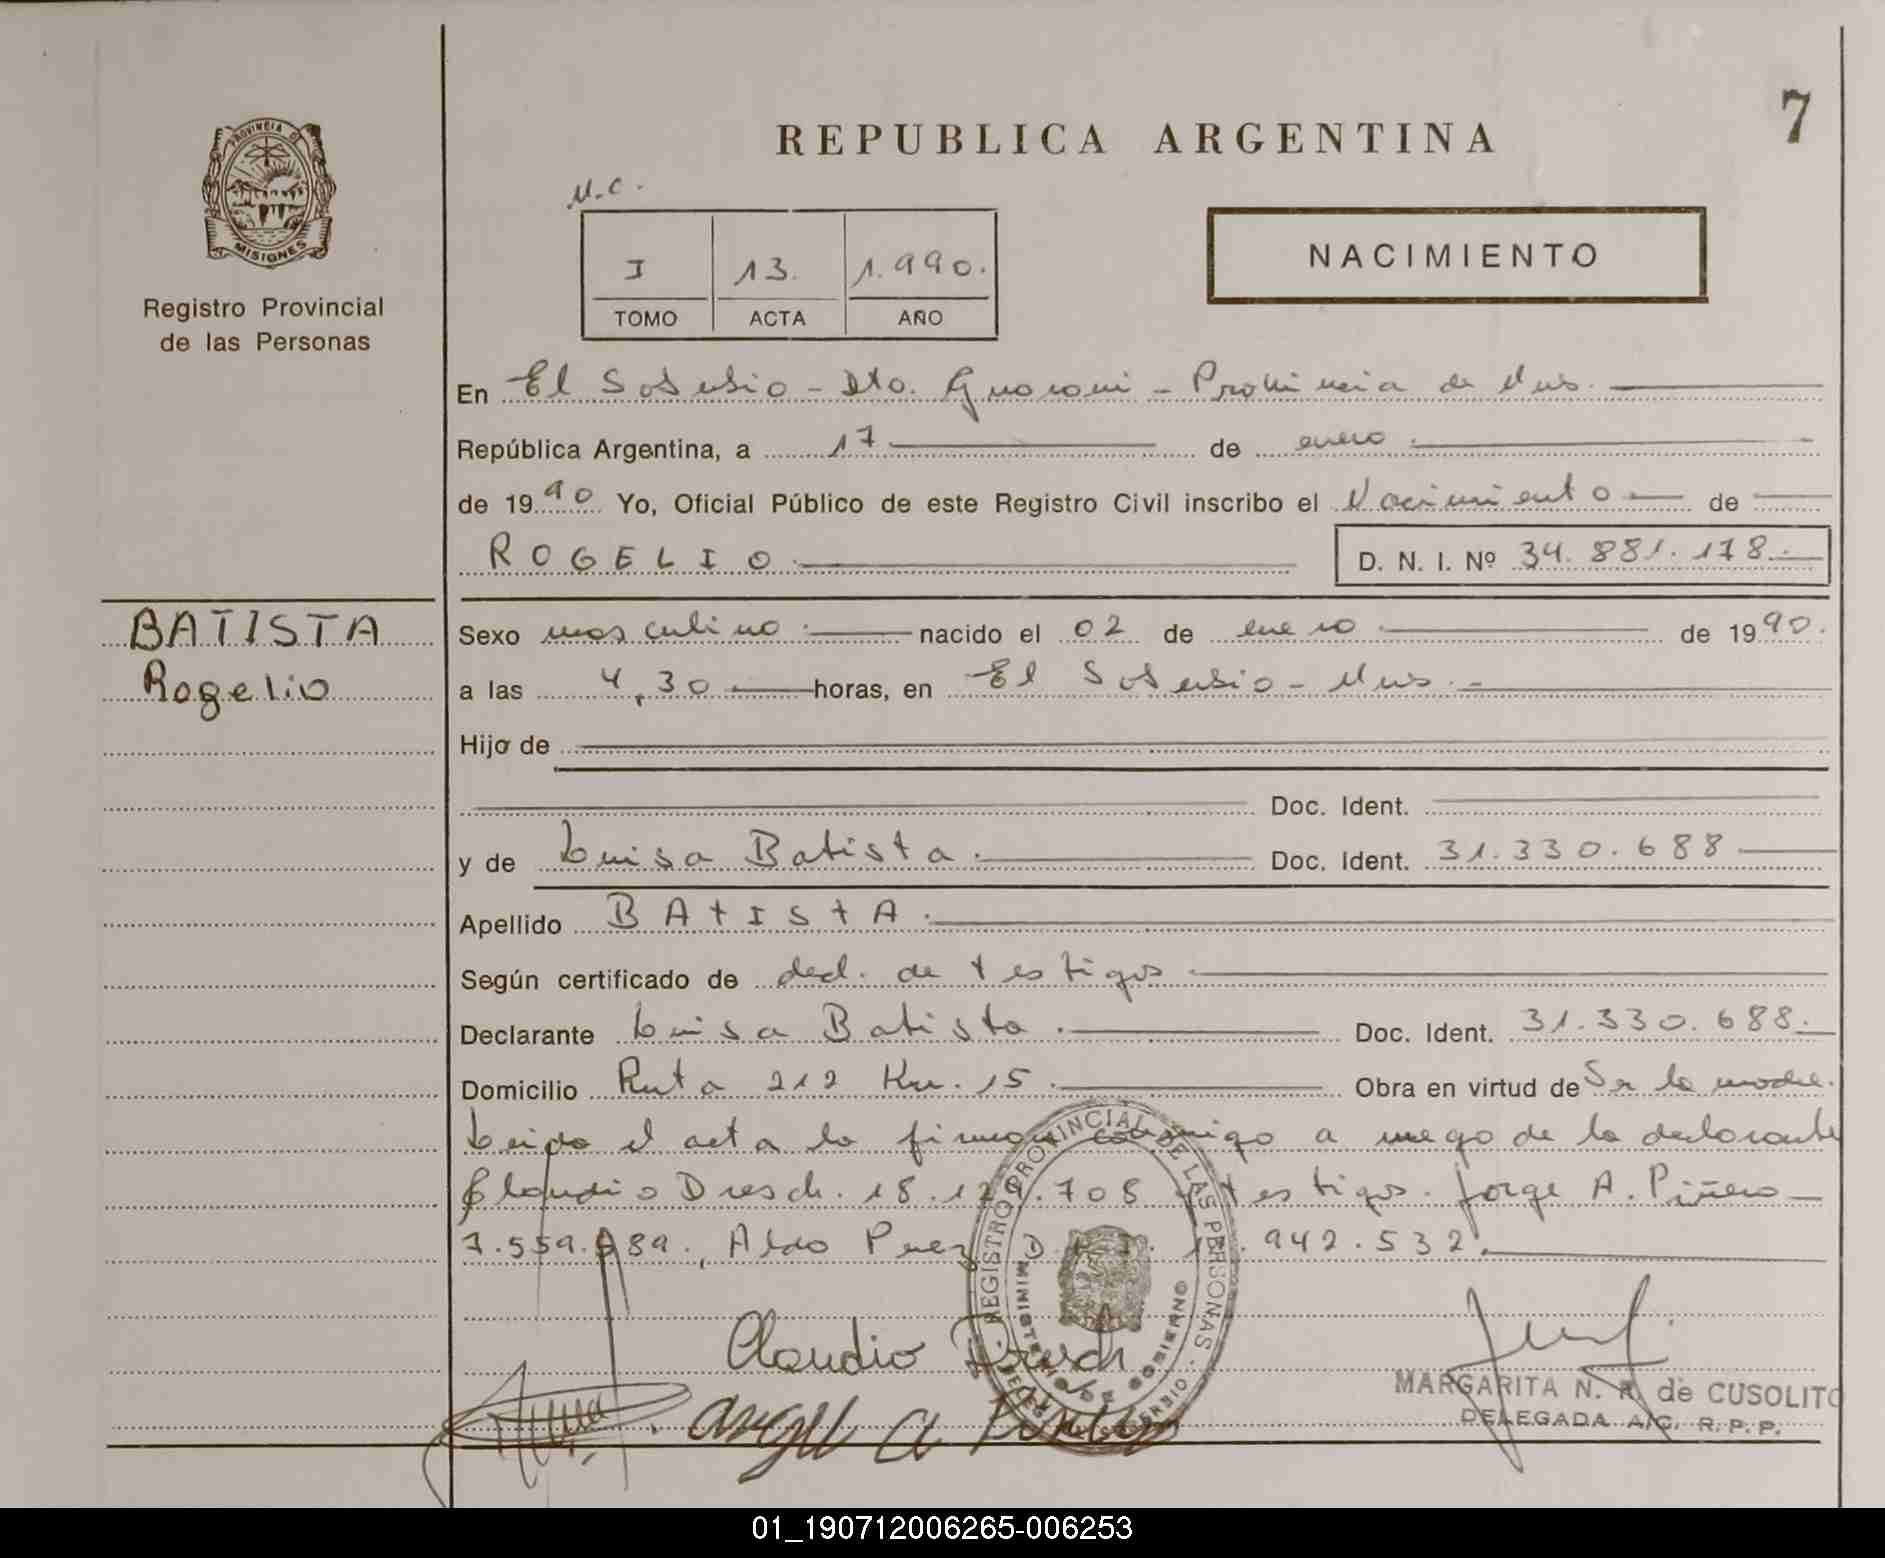 7
REPUBLICA ARGENTINA
PROVINCIA DE
MISIONES
Registro Provincial
de las Personas
M.C.
I 13. 1.990.
TOMO ACTA AÑO
NACIMIENTO
En El Soberbio - Dto. Guarani - Provincia de Mnes.
República Argentina, a 17 de enero.
de 1990 Yo, Oficial Público de este Registro Civil inscribo el Nacimiento de
ROGELIO. D. N. I. Nº 34.881.178.
BATISTA
Rogelio
Sexo masculino. nacido el 02 de enero. de 1990.
a las 4,30 horas, en El Soberbio - Mnes.-
Hijo de
Doc. Ident.
y de Luisa Batista. Doc. Ident. 31.330.688
Apellido BATISTA.
Según certificado de decl. de testigos.
Declarante Luisa Batista. Doc. Ident. 31.330.688.
Domicilio Ruta 212 Km. 15. Obra en virtud de Ser la madre.
Leida el acta la firman conmigo a ruego de la declarante
Claudio Dresch. 18.129.708 testigos. Jorge A. Piñero
7.559.989., Aldo 942.532.
REGISTRO PROVINCIAL DE LAS PERSONAS
MINISTERIO DE GOBIERNO
Claudio Dresch
MARGARITA N. R. de CUSOLITO
DELEGADA A/C. R.P.P.
01_190712006265-006253